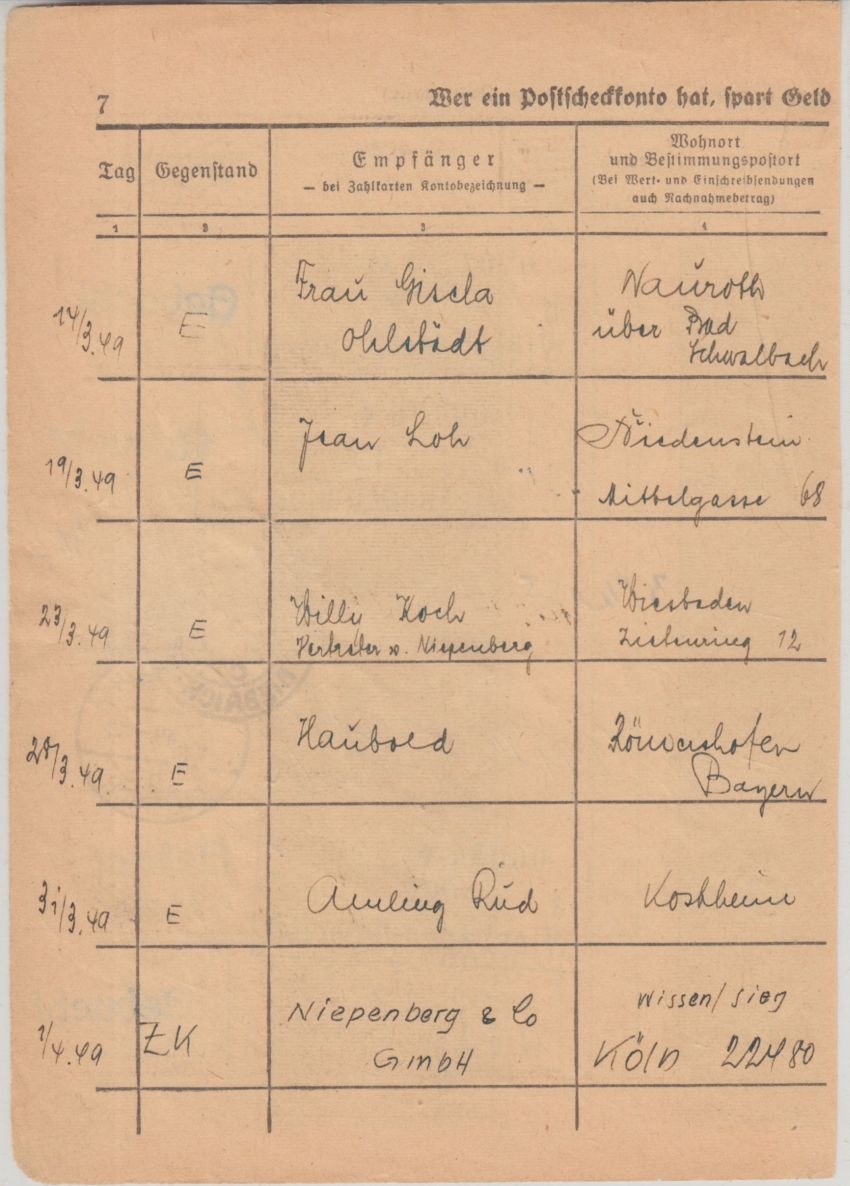 7
Wer ein Postscheckkonto hat, spart Geld
Tag
Gegenstand
Empfänger
— bei Zahlkarten Kontobezeichnung —
Wohnort
und Bestimmungspostort
(Bei Wert- und Einschreibsendungen
auch Nachnahmebetrag)
1 2 3 4
14/3.49 E
Frau Gisela
Ohlstädt
Nauroth
über Bad
Schwalbach
19/3.49 E
Jean Loh
Niedenstein
Mittelgasse 68
23/3.49 E
Willi Koch
Vertreter v. Niepenberg
Wiesbaden
Zietenring 12
/3.49 E
Haubold
Bayern
31/3.49 E
Amling Rud
Kostheim
1/4.49 ZK
Niepenberg & Co
GmbH
Wissen/Sieg
Köln 22480